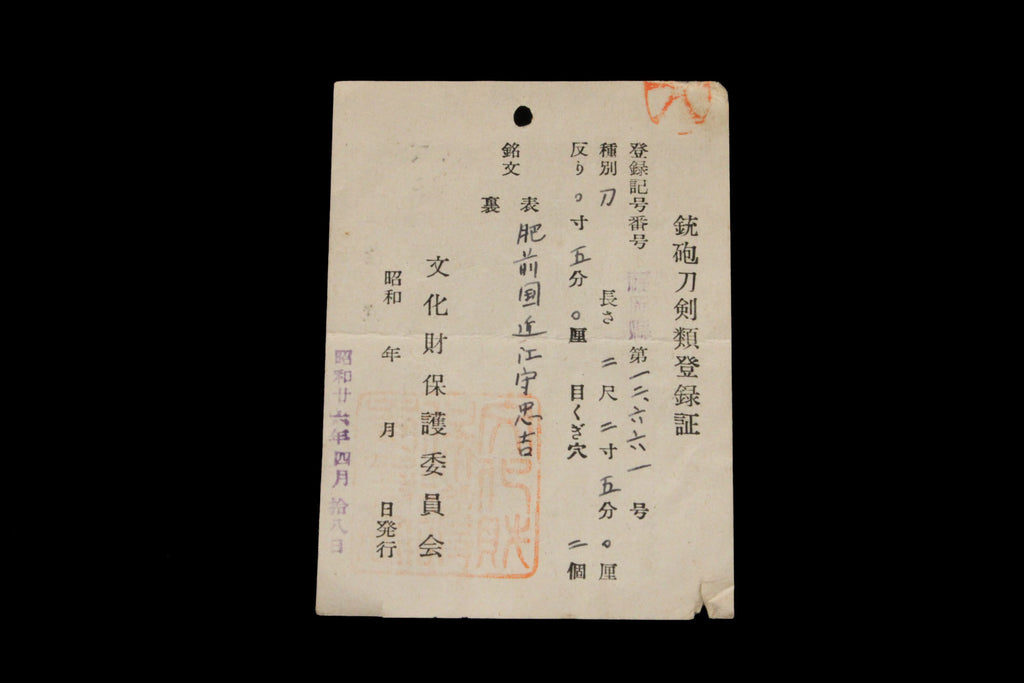 銃砲刀剣類登録証
登録記号番号 第一二、六六一号
種別 刀 長さ 二尺二寸五分〇厘
反り 〇寸五分〇厘 目くぎ穴 二個
銘文 表 肥前国近江守忠吉
裏
文化財保護委員会
昭和 年 月 日発行
昭和廿六年四月拾八日